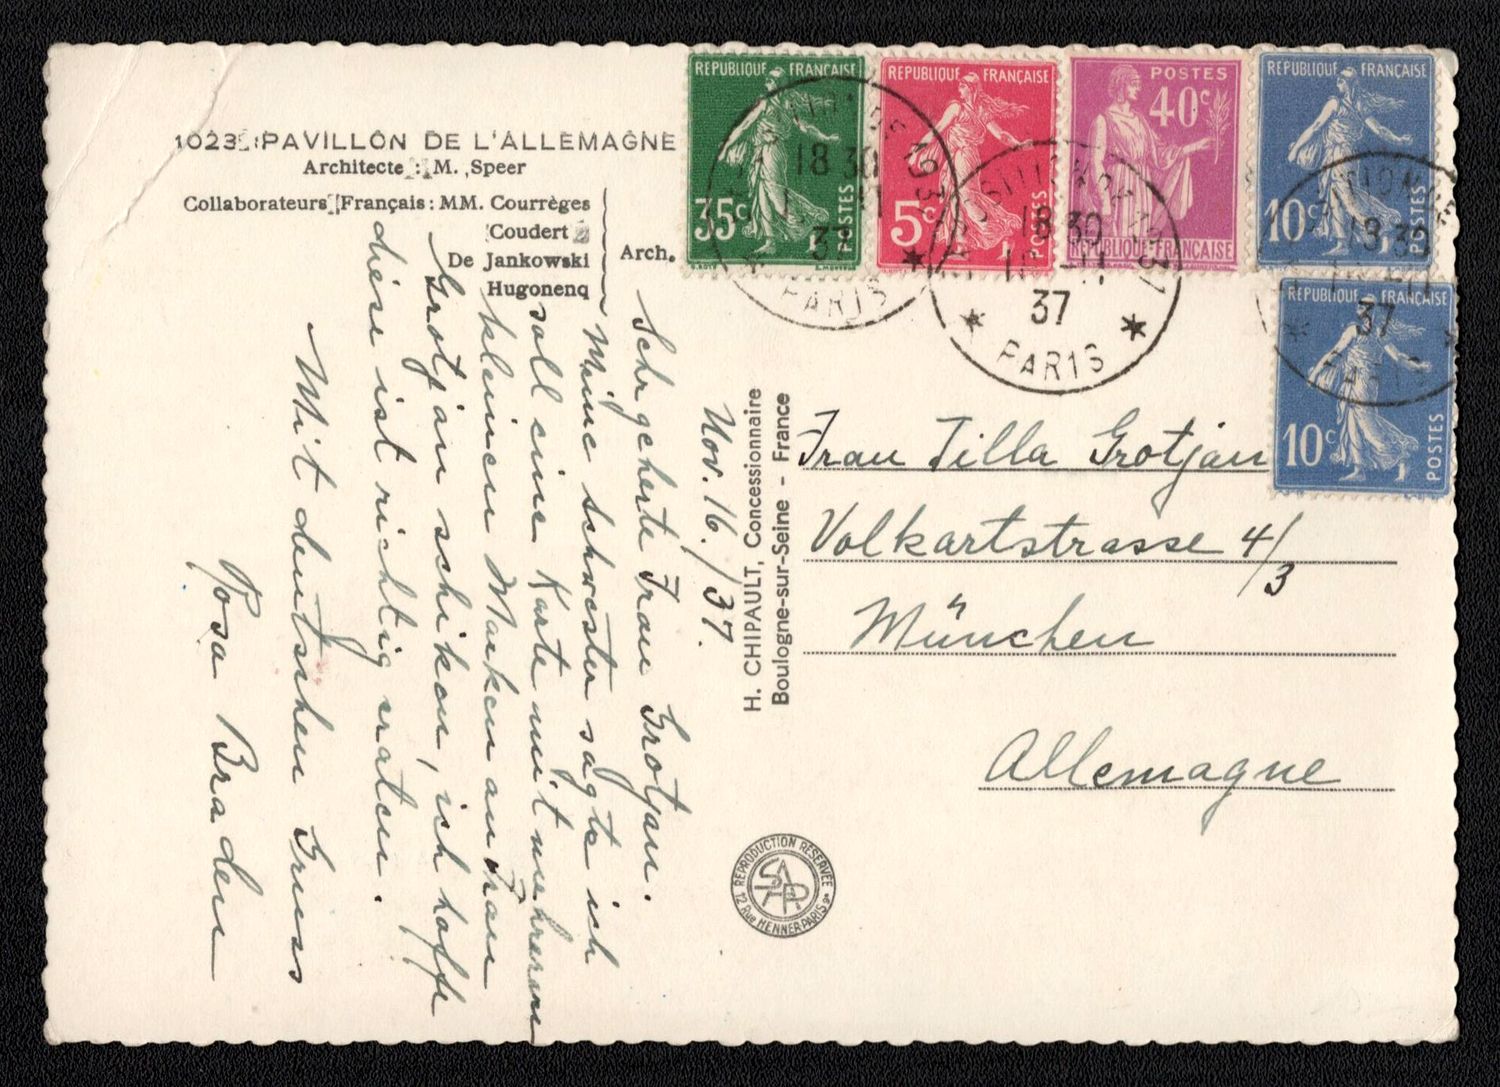 1023. PAVILLON DE L'ALLEMAGNE
Architecte : M. Speer
Collaborateurs Français : MM. Courrèges
Coudert
De Jankowski
Hugonenq
Arch.
REPUBLIQUE FRANÇAISE
35c
POSTES
REPUBLIQUE FRANÇAISE
5c
POSTES
POSTES
40c
REPUBLIQUE FRANÇAISE
REPUBLIQUE FRANÇAISE
10c
POSTES
REPUBLIQUE FRANÇAISE
10c
POSTES
18 30
37
PARIS
18 30
16 -11
37
PARIS
18 30
37
PARIS
Nov. 16./37.
Sehr geherte Frau Grotjan.
Meine Schwester sagte ich
soll eine Karte mit mehreren
kleineren Marken an Frau
Grotjan schiken, ich hoffe
diese ist richtig eraten.
Mit deutshen Gruss
Rosa Braden
H. CHIPAULT, Concessionnaire
Boulogne-sur-Seine - France
Frau Tilla Grotjan
Volkartstrasse 4/3
München
Allemagne
REPRODUCTION RÉSERVÉE
SAPR
12 Rue HENNER PARIS 9e